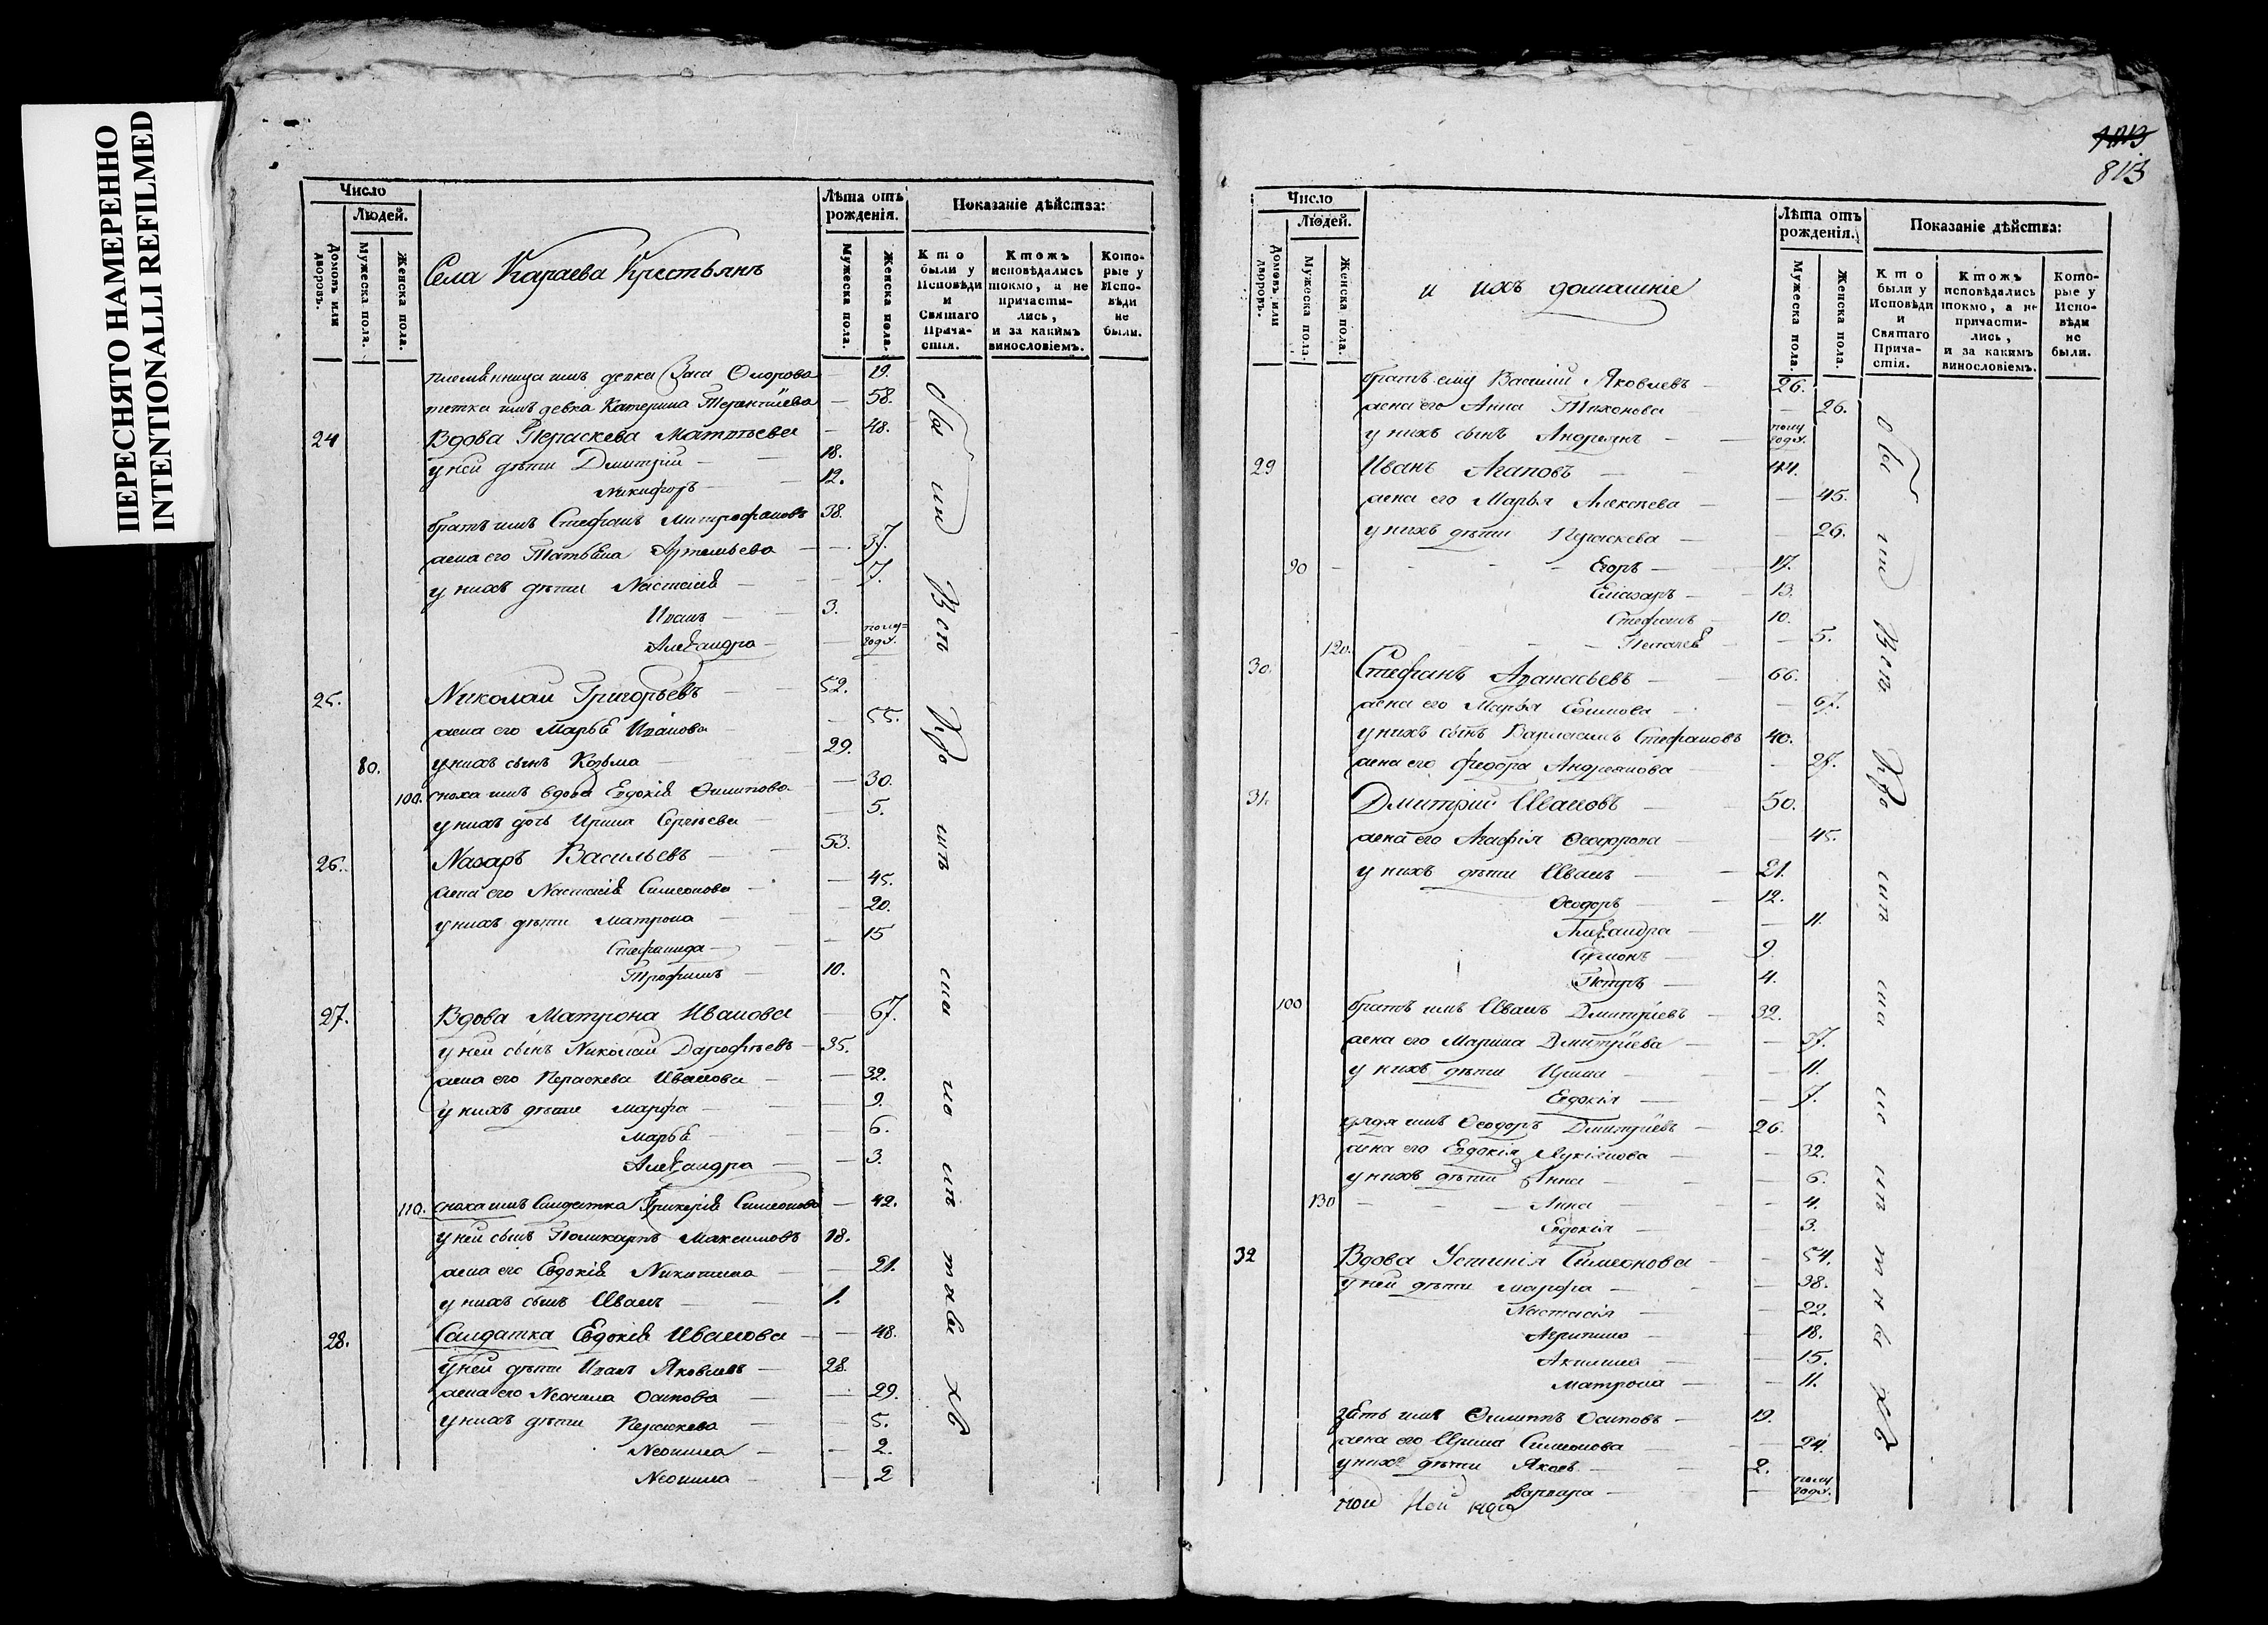 ПЕРЕСНЯТО НАМЕРЕННО
INTENTIONALLI REFILMED
Число
Людей.
Домовъ или дворовъ.
Мужеска пола.
Женска пола.
Села Караева Крестьянъ
Лѣта отъ рожденія.
Мужеска пола.
Женска пола.
Показаніе дѣйства:
Кто были у Исповѣди и Святаго Прича- стія.
Ктожъ исповѣдались токмо, а не причасти- лись, и за какимъ винословіемъ.
Кото- рые у Испо- вѣди не были.
племянница имъ девка 19.
тетка имъ девка Катерина Терентіева — 58.
24 Вдова Параскева Матвѣева — 48.
у ней дѣти Дмитрій — 18.
Никифоръ — 12.
братъ имъ Стефанъ Митрофановъ 38.
жена его Татьяна Артемьева — 37.
у нихъ дѣти Настасія — 7.
Иванъ — 3.
Александра — полу- года.
25. Николай Григорьевъ — 52.
жена его Марья Иванова — 55.
80. у нихъ сынъ Козьма — 29.
100. сноха имъ вдова Евдокія Филипова — 30.
у нихъ дочь Ирина Сергѣева — 5.
26. Назаръ Васильевъ — 53.
жена его Настасія Симеонова — 45.
у нихъ дѣти Матрона — 20.
Стефанида — 15
Трофимъ — 10.
27. Вдова Матрона Иванова — 67.
у ней сынъ Николай Дарофѣевъ — 35.
жена его Параскева Иванова — 32.
у нихъ дѣти Марфа — 9.
Марья — 6.
Александра — 3.
110. сноха имъ Салдатка Симеонова — 42.
у ней сынъ Поликарпъ Максимовъ 18.
жена его Евдокія Никитина — 21.
у нихъ сынъ Иванъ — 1.
28. Салдатка Евдокія Иванова — 48.
у ней дѣти Иванъ Яковлевъ — 28.
жена его Неонила Осипова — 29.
у нихъ дѣти Параскева — 5.
Неонила — 2.
Неонила — 2
813
Число
Людей.
Домовъ или дворовъ.
Мужеска пола.
Женска пола.
и ихъ домашніе
Лѣта отъ рожденія.
Мужеска пола.
Женска пола.
Показаніе дѣйства:
Кто были у Исповѣди и Святаго Прича- стія.
Ктожъ исповѣдались токмо, а не причасти- лись, и за какимъ винословіемъ.
Кото- рые у Испо- вѣди не были.
братъ ему Василій Яковлевъ — 26.
жена его Анна Тихонова — 26.
у нихъ сынъ Андреянъ — полу года.
29 Иванъ Агаповъ — 44.
жена его Марья Алексѣева — 45.
у нихъ дѣти Параскева — 26.
90 Егоръ — 17.
Елиазаръ — 13.
Стефанъ — 10.
120. — 5.
30. Стефанъ Афанасьевъ — 66.
жена его Марья Ефимова — 67.
у нихъ сынъ Стефановъ 40.
жена его Федора Андреянова — 27.
31. Дмитрій Ивановъ — 50.
жена его Агафія Ѳеодорова — 45.
у нихъ дѣти Иванъ — 21.
Ѳеодоръ — 12.
Александра — 11.
Симіонъ — 9.
Петръ — 4.
100 братъ имъ Иванъ Дмитріевъ — 32.
жена его Марина Дмитріева — 37.
у нихъ дѣти Ирина — 11.
Евдокія — 7.
дядя имъ Ѳеодоръ Дмитріевъ — 26.
жена его Евдокія Лукіянова — 32.
у нихъ дѣти Анна — 6.
130 Анна — 4.
Евдокія — 3.
32 Вдова Устинія Симеонова — 54.
у ней дѣти Марфа — 38.
Настасія — 22.
Агрипина — 18.
Акилина — 15.
Матрона — 11.
зять имъ Филиппъ Осиповъ — 19.
жена его Ирина Симеонова — 24.
у нихъ дѣти Яковъ — 2.
Варвара — полу года.